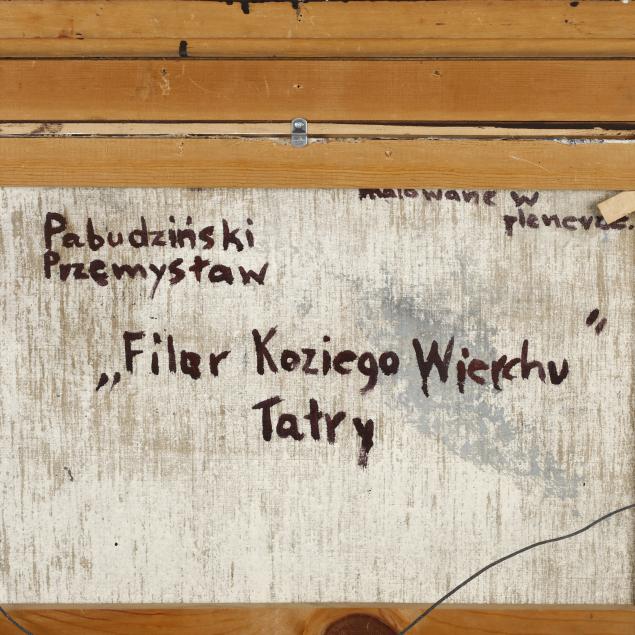 malowane w
plenerze.
Pabudziński
Przemysław
„Filar Koziego Wierchu”
Tatry